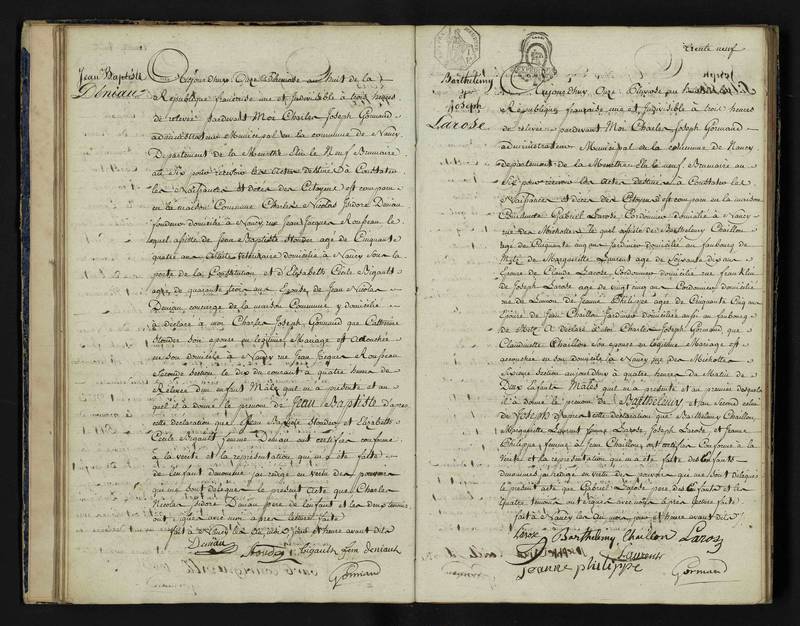 Jean Baptiste
Déniau
Aujourdhuy Onze
République française une et Indivisible à trois heures
de relevée pardevant Moi Charles Joseph Gormand
administrateur Municipal de la commune de Nancy
Département de la Meurthe Elu le Neuf Brumaire
an Six pour recevoir les Actes destinés à Constater
les Naissances et décès des Citoyens est comparu
en la maison Commune Charles Nicolas Isidore Deniau
fondeur domicilié à Nancy rue Jean Jacques Rousseau le
quel assisté de Jean Baptiste agé de Cinquante
quatre ans Artiste vétérinaire domicilié à Nancy sous la
porte de la Constitution et d'Elizabeth Cécile Bigault
agée de quarante trois ans Epouse de Jean Nicolas
Deniau concierge de la maison Commune y domicilié
à déclaré à moi Charles Joseph Gormand que Catherine
son epouse en légitime Mariage est accouchée
en son domicile à Nancy rue Jean Jacques Rousseau
Seconde Section le dix du courant à quatre heures de
Relevée d'un enfant Mâle qui m'a présenté et au
quel il a donné le prenom de Jean Baptiste D'apres
cette déclaration que Jean Baptiste et Elizabeth
Cécile Bigault femme Deniau ont certifiée conforme
à la vérité et la représentation qui m'a été faite
de l'enfant dénommé j'ai rédigé en vertu des pouvoirs
qui me sont délégués le présent acte que Charles
Nicolas Isidore Deniau père de l'enfant et les deux témoins
ont signé avec moi après lecture faite
fait à Nancy les an, mois, Jour et heure avant dits
Deniau
Bigault fem deniau
Gormand
trente neuf
Barthelemy
et
Joseph
Larose
Aujourdhuy Onze
République française une et Indivisible à trois heures
de relevée pardevant Moi Charles Joseph Gormand
administrateur Municipal de la commune de Nancy
département de la Meurthe Elu le neuf Brumaire an
Six pour recevoir les Actes destinés à Constater les
Naissances et décès des Citoyens est comparu en la maison
Commune Gabriel Larose Cordonnier domicilié à Nancy
rue des Michottes le quel assisté de Barthelemy Chaillon
agé de Cinquante cinq ans Jardinier domicilié au faubourg de
Metz de Marguerite Laurent agée de Soixante dix ans
Epouse de Claude Larose Cordonnier domicilié rue franklin
de Joseph Larose agé de vingt cinq ans Cordonnier domicilié
rue de de Jeanne Philippe agée de Cinquante Cinq ans
Epouse de Jean Chaillon Jardinier domicilié aussi au faubourg
de Metz A déclaré à moi Charles Joseph Gormand que
Chaillon Son epouse en légitime Mariage est
accouchée en son domicile à Nancy rue des Michottes
Section aujourdhuy à quatre heures du Matin de
Deux Enfants Mâles qui m'a présenté et au premier desquels
il a donné le prenom de Barthelemy et au Second celui
de Joseph D'apres cette déclaration que Barthelemy Chaillon,
Marguerite Laurent femme Larose Joseph Larose, et Jeanne
Philippe, femme à Jean Chaillon, ont certifiée Conforme à la
vérité et la représentation qui m'a été faite des Enfants
dénommés j'ai rédigé en vertu des pouvoirs qui me sont délégués
le présent acte que Gabriel Larose père des Enfants et les
quatre témoins ont signé avec moi après lecture faite
fait à Nancy les an mois, jour et heure avant dits
Larose Barthelemy Chaillon Larose
Laurent
Jeanne philippe
Gormand